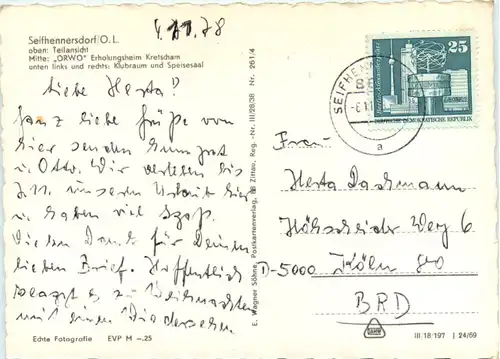 Seifhennersdorf/O.L.
oben: Teilansicht
Mitte: „ORWO" Erholungsheim Kretscham
unten links und rechts: Klubraum und Speisesaal
4.11.78
Liebe Herta!
Ganz liebe Grüße von
hier senden
u. Otto. Wir verleben bis
7.11. unseren Urlaub hier
u. haben viel Spaß.
Vielen Dank für Deinen
lieben Brief. Hoffentlich
klappt es zu Weihnachten
mit einem Wiedersehen
Echte Fotografie EVP M -.25
E. Wagner Söhne, Postkartenverlag, Zittau, Reg.-Nr. III/28/38 Nr. 261/4
SEIFHENN
a
25
DEUTSCHE DEMOKRATISCHE REPUBLIK
Frau
Herta Dachmann
Höhscheider Weg 6
D-5000 Köln 80
BRD
III 18/197 J 24/69